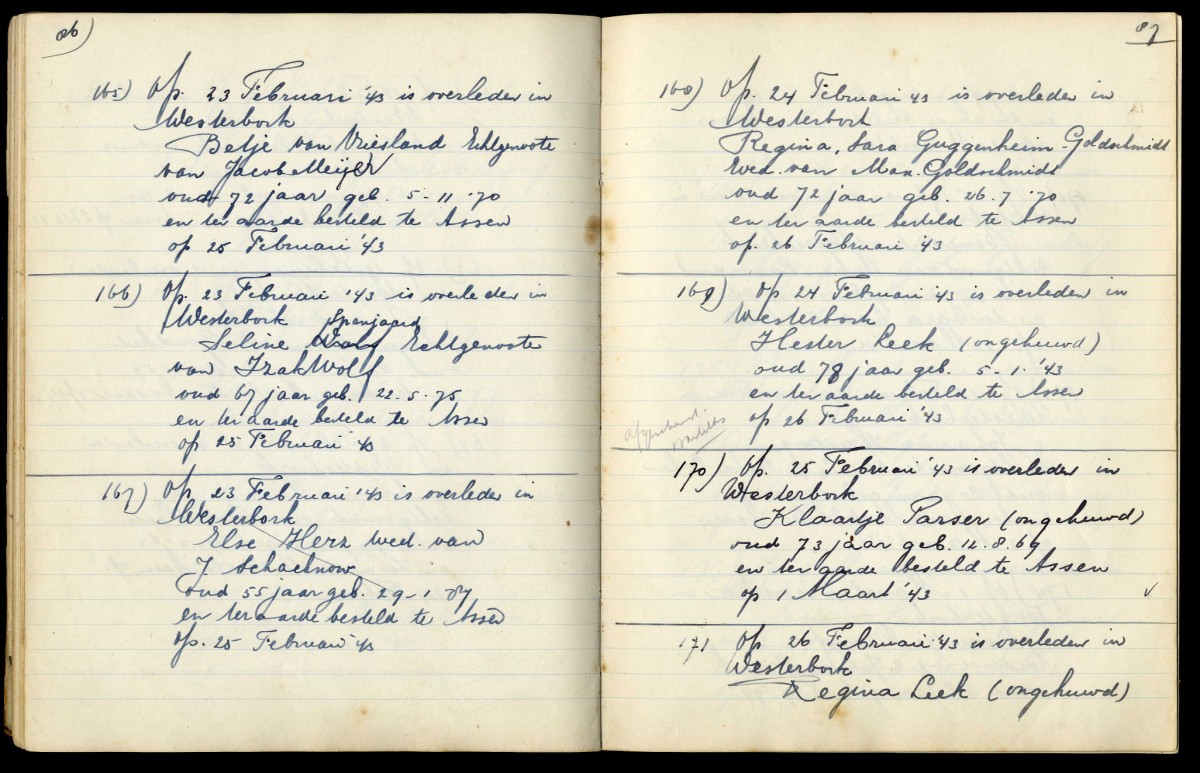 86)
165) Op. 23 Februari '43 is overleden in
Westerbork
Betje van Vriesland Echtgenoote
van Jacob Meijer
oud 72 jaar geb. 5-11-70
en ter aarde besteld te Assen
op 25 Februari '43
166) Op. 23 Februari '43 is overleden in
Westerbork
Spanjaard
Seline Wolf Echtgenoote
van Izak Wolf
oud 67 jaar geb. 22-5-75
en ter aarde besteld te Assen
op 25 Februari '43
167) Op. 23 Februari '43 is overleden in
Westerbork
Else Herz wed. van
J Schachnow
oud 55 jaar geb. 29-1-87
en ter aarde besteld te Assen
op. 25 Februari '43
87
168) Op. 24 Februari '43 is overleden in
Westerbork
Regina, Sara Guggenheim-Goldschmidt
Wed. van Max Goldschmidt
oud 72 jaar geb. 26.7.'70
en ter aarde besteld te Assen
op. 26 Februari '43
169) Op 24 Februari '43 is overleden in
Westerbork
Hester Leek (ongehuwd)
oud 78 jaar geb. 5-1-'43
en ter aarde besteld te Assen
op 26 Februari '43
170) Op. 25 Februari '43 is overleden in
Westerbork
Klaartje Parser (ongehuwd)
oud 73 jaar geb. 12.8.69
en ter aarde besteld te Assen
op 1 Maart '43
171 Op 26 Februari '43 is overleden in
Westerbork
Regina Leek (ongehuwd)